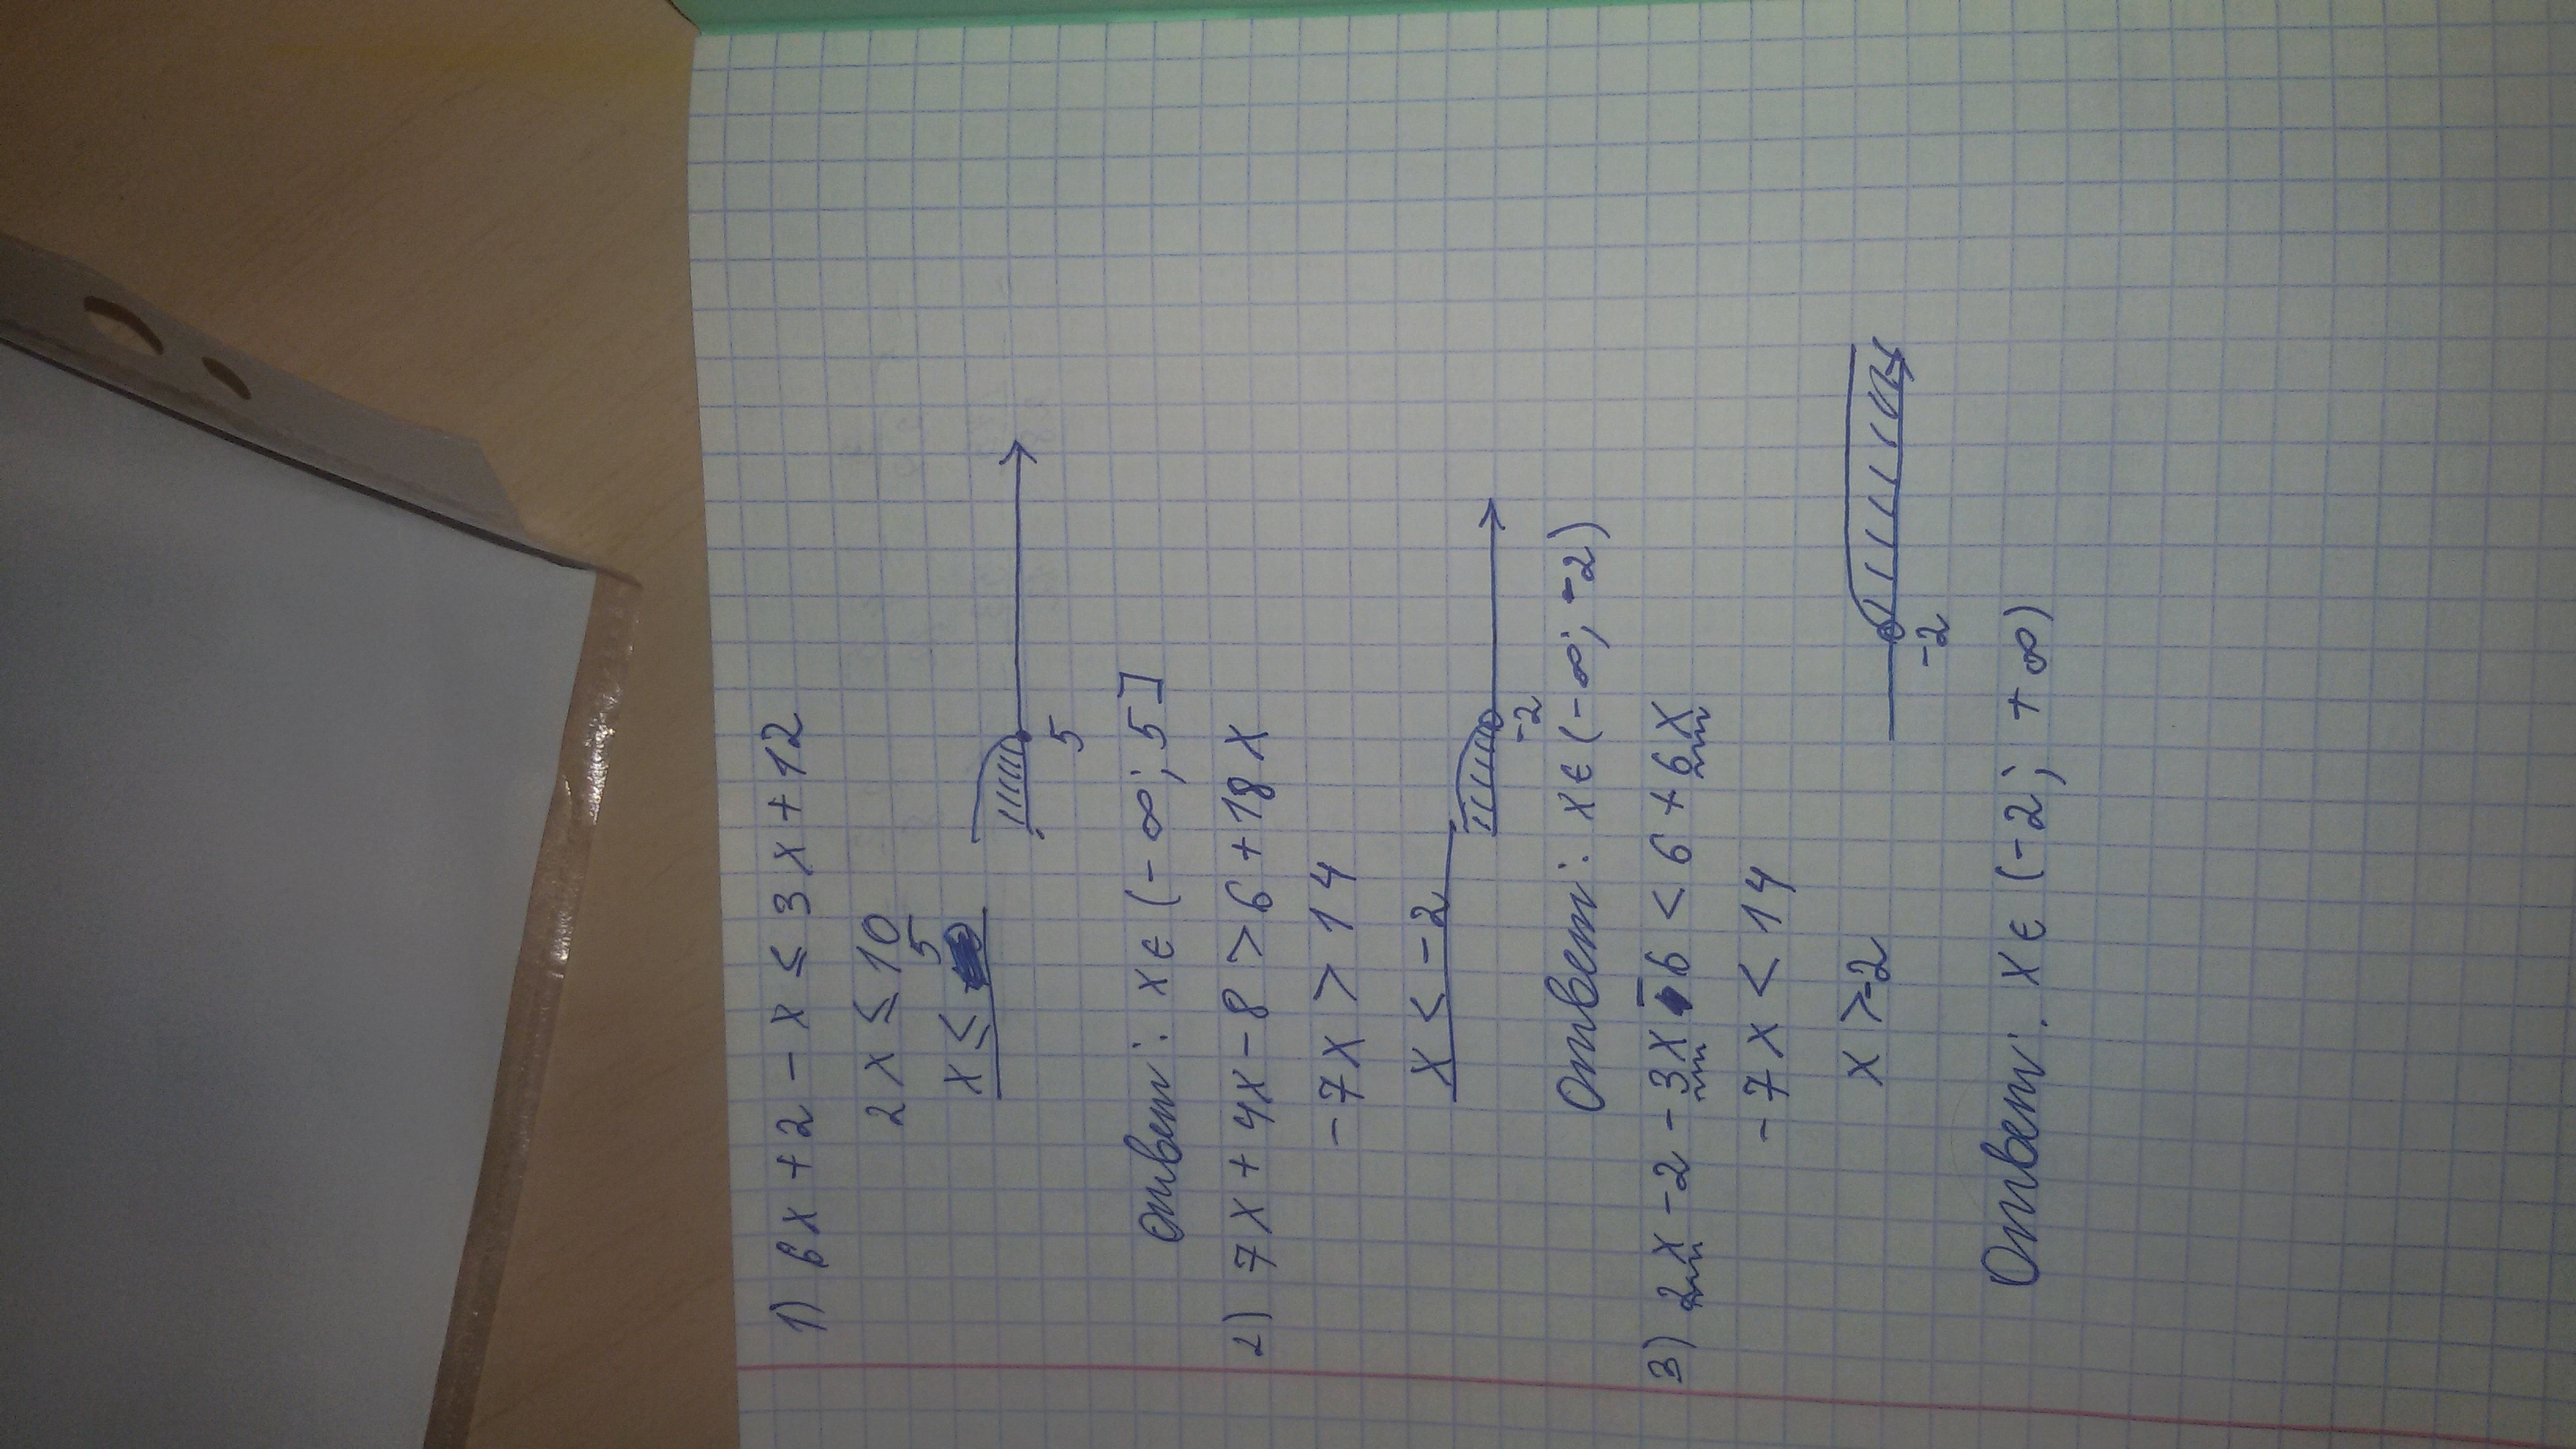 1) 6x + 2 - x ≤ 3x + 12
2x ≤ 10
x ≤ 5
5
Ответ: x ∈ (-∞; 5]
2) 7x + 4x - 8 > 6 + 18x
-7x > 14
x < -2
-2
Ответ: x ∈ (-∞; -2)
3) 2x - 2 - 3x - 6 < 6 + 6x
-7x < 14
x > -2
-2
Ответ: x ∈ (-2; +∞)